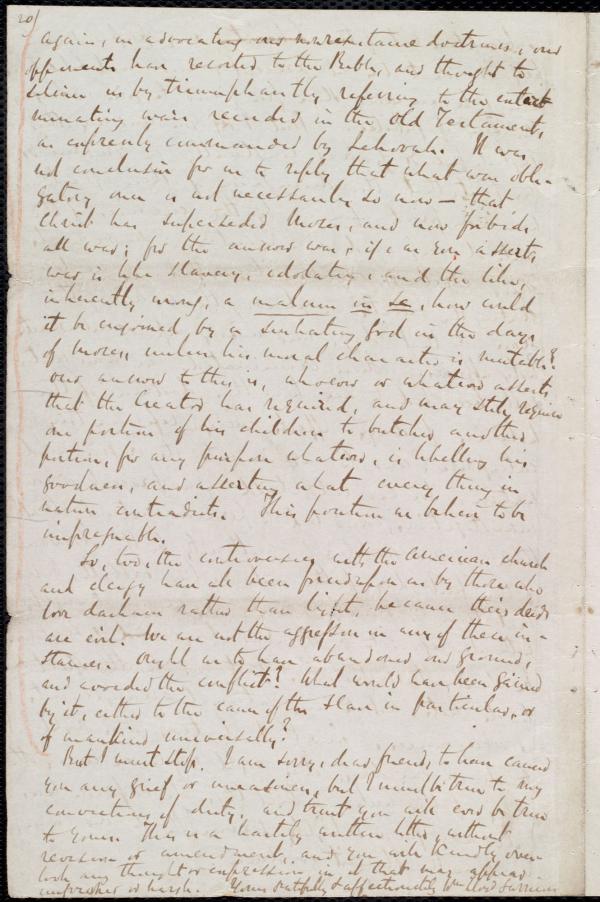 20/
Again, in advocating our non-resistance doctrines, our
opponents have resorted to the Bible, and thought to
silence us by triumphantly referring to the exter-
minating wars recorded in the Old Testament,
as expressly commanded by Jehovah. It was
not conclusive for us to reply that what was obli-
gatory once is not necessarily so now — that
Christ has superseded Moses, and now forbids
all war; for the answer was, if, as you assert,
war is like slavery, idolatry, and the like,
inherently wrong, a malum in se, how could
it be enjoined by a sin-hating God in the days
of Moses, unless his moral character is mutable?
Our answer to this is, whoever or whatever asserts
that the Creator has required, or may still require
one portion of his children to butcher another
portion, for any purpose whatever, is libelling his
goodness, and asserting what every thing in
nature contradicts. This position we believe to be
impregnable.
So, too, the controversies with the American church
and clergy have all been forced upon us by those who
love darkness rather than light, because their deeds
are evil. We are not the aggressors in any of these in-
stances. Ought we to have abandoned our ground,
and avoided the conflict? What would have been gained
by it, either to the cause of the slave in particular, or
of mankind universally?
But I must stop. I am sorry, dear friend, to have caused
you any grief or uneasiness, but I must be true to my
convictions of duty, and trust you will ever be true
to yours. This is a hastily written letter, without
revision or amendment, and you will kindly over-
look any thought or expression in it that may appear
imprope or harsh. Yours faithfully & affectionately Wm Lloyd Garrison